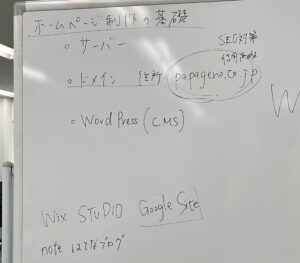 ホームページ制作の基礎
・サーバー
SEO対策
・ドメイン 住所 papageno.co.jp
・WordPress (CMS)
W
Wix STUDIO Google Site
note はてなブログ